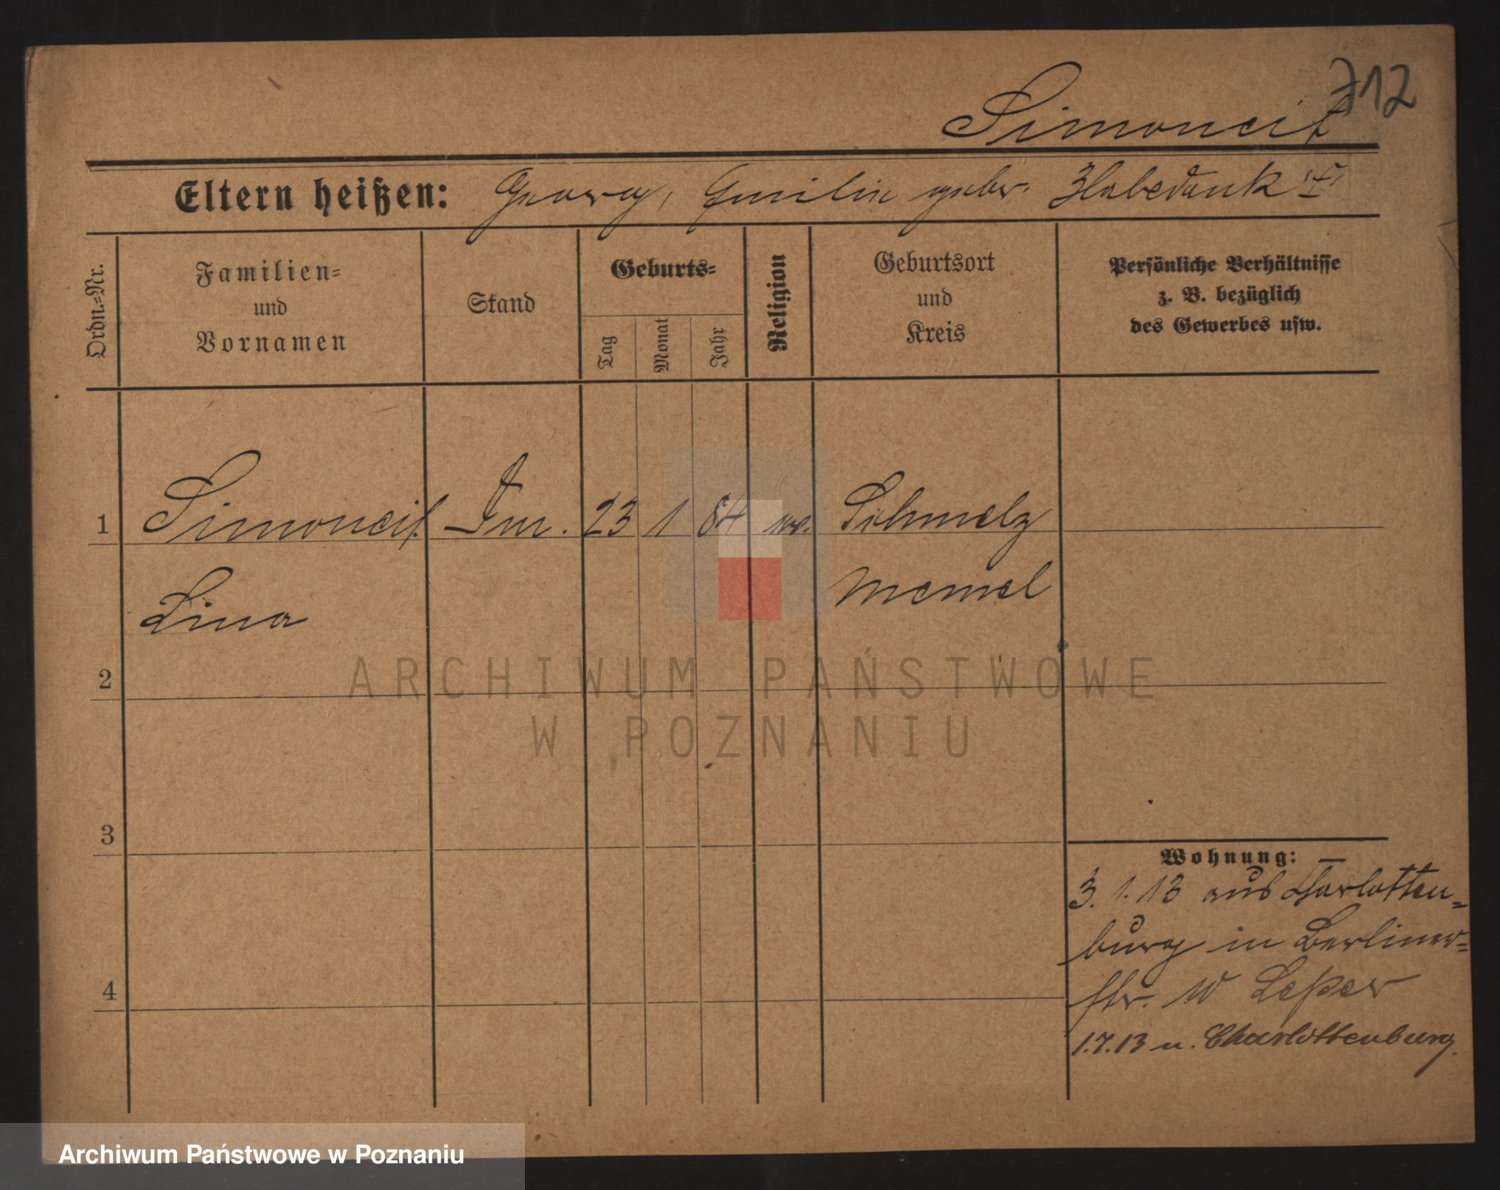 712
Simoneit
Eltern heißen: Georg, Emilie gebr. Habedank
Ordn.=Nr.
Familien=
und
Vornamen
Stand
Geburts=
Tag
Monat
Jahr
Religion
Geburtsort
und
Kreis
Persönliche Verhältnisse
z. B. bezüglich
des Gewerbes usw.
1 Simoneit 23 1 84 Schmelz
Lina Memel
2
3
4
Wohnung: —
3.1.13 aus Charlotten=
burg in Berliner=
str. 10
1.7.13 n. Charlottenburg.
ARCHIWUM PAŃSTWOWE
W POZNANIU
Archiwum Państwowe w Poznaniu